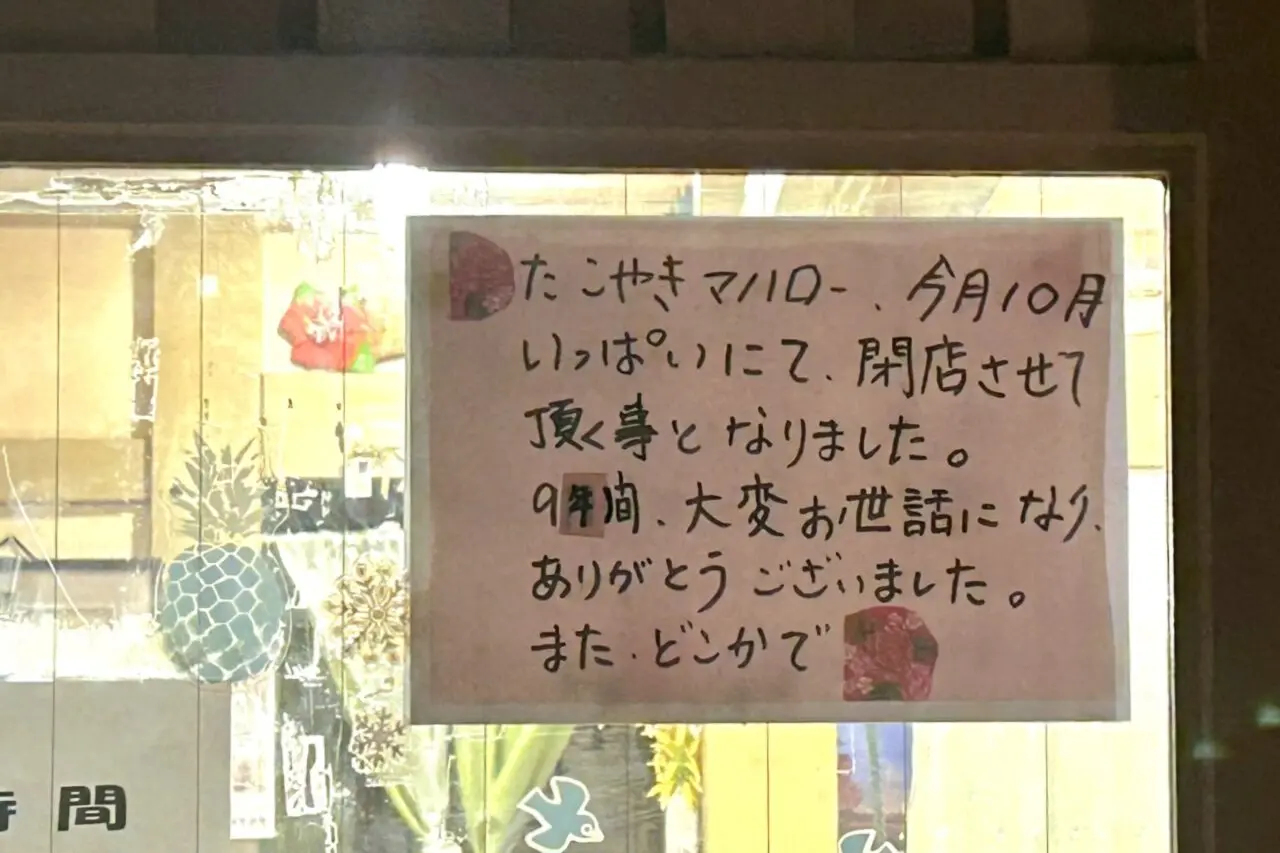 たこやきマハロー、今月10月
いっぱいにて、閉店させて
頂く事となりました。
9年間、大変お世話になり、
ありがとうございました。
また、どこかで
時間